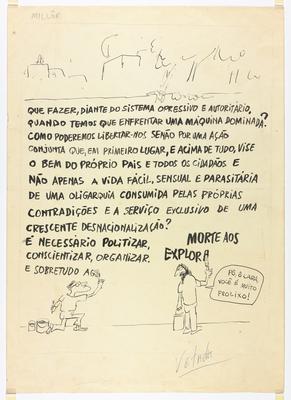 MILLÔR
QUE FAZER, DIANTE DO SISTEMA OPRESSIVO E AUTORITÁRIO,
QUANDO TEMOS QUE ENFRENTAR UMA MÁQUINA DOMINADA?
COMO PODEREMOS LIBERTAR-NOS SENÃO POR UMA AÇÃO
CONJUNTA QUE, EM PRIMEIRO LUGAR, E ACIMA DE TUDO, VISE
O BEM DO PRÓPRIO PAIS E TODOS OS CIDADÃOS E
NÃO APENAS A VIDA FÁCIL, SENSUAL E PARASITÁRIA
DE UMA OLIGARQUIA CONSUMIDA PELAS PRÓPRIAS
CONTRADIÇÕES E A SERVIÇO EXCLUSIVO DE UMA
CRESCENTE DESNACIONALIZAÇÃO?
É NECESSÁRIO POLITIZAR,
CONSCIENTIZAR, ORGANIZAR.
E SOBRETUDO AG
MORTE AOS
EXPLORA
PÔ, Ô CARA,
VOCÊ É MUITO
PROLIXO!
Vetado